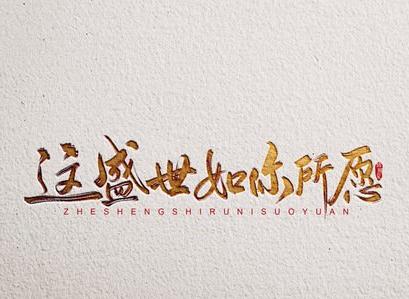 这盛世如你所愿
·ZHESHENGSHIRUNISUOYUAN·